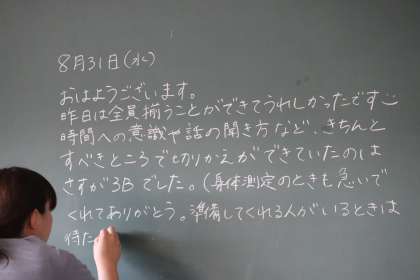 8月31日(水)
おはようございます。
昨日は全員揃うことができてうれしかったです
時間への意識や話の聞き方など、きちんと
すべきところで切りかえができていたのは
さすが3Bでした。(身体測定のときも急いで
くれてありがとう。準備してくれる人がいるときは
待た